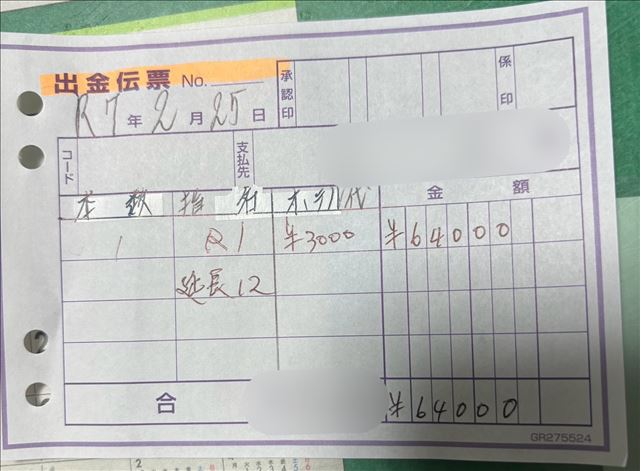 出金伝票 No.
承認印
係印
R7年2月25日
コード
支払先
本数 指名 ホテル代 金額
1 R1 ¥3000 ¥64000
延長12
合 ¥64000
GR275524